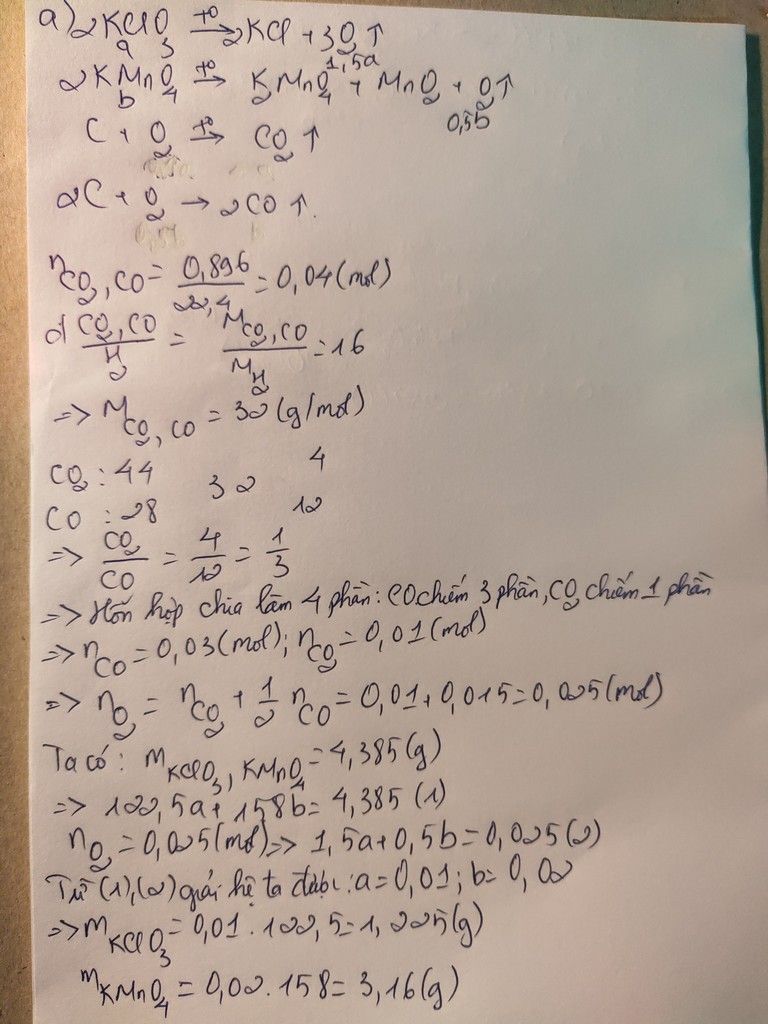 a) 2KClO₃ →t° 2KCl + 3O₂ ↑
a 1,5a
2KMnO₄ →t° K₂MnO₄ + MnO₂ + O₂ ↑
b 0,5b
C + O₂ →t° CO₂ ↑
2C + O₂ → 2CO ↑.
nCO₂, CO = 0,896/22,4 = 0,04 (mol)
d CO₂, CO/H₂ = MCO₂, CO/MH₂ = 16
=> MCO₂, CO = 32 (g/mol)
CO₂ : 44 4
32
CO : 28 12
=> CO₂/CO = 4/12 = 1/3
=> Hỗn hợp chia làm 4 phần: CO chiếm 3 phần, CO₂ chiếm 1 phần
=> nCO = 0,03 (mol); nCO₂ = 0,01 (mol)
=> nO₂ = nCO₂ + 1/2 nCO = 0,01 + 0,015 = 0,025 (mol)
Ta có: mKClO₃, KMnO₄ = 4,385 (g)
=> 122,5a + 158b = 4,385 (1)
nO₂ = 0,025 (mol) => 1,5a + 0,5b = 0,025 (2)
Từ (1), (2) giải hệ ta được: a = 0,01; b = 0,02
=> mKClO₃ = 0,01 . 122,5 = 1,225 (g)
mKMnO₄ = 0,02 . 158 = 3,16 (g)